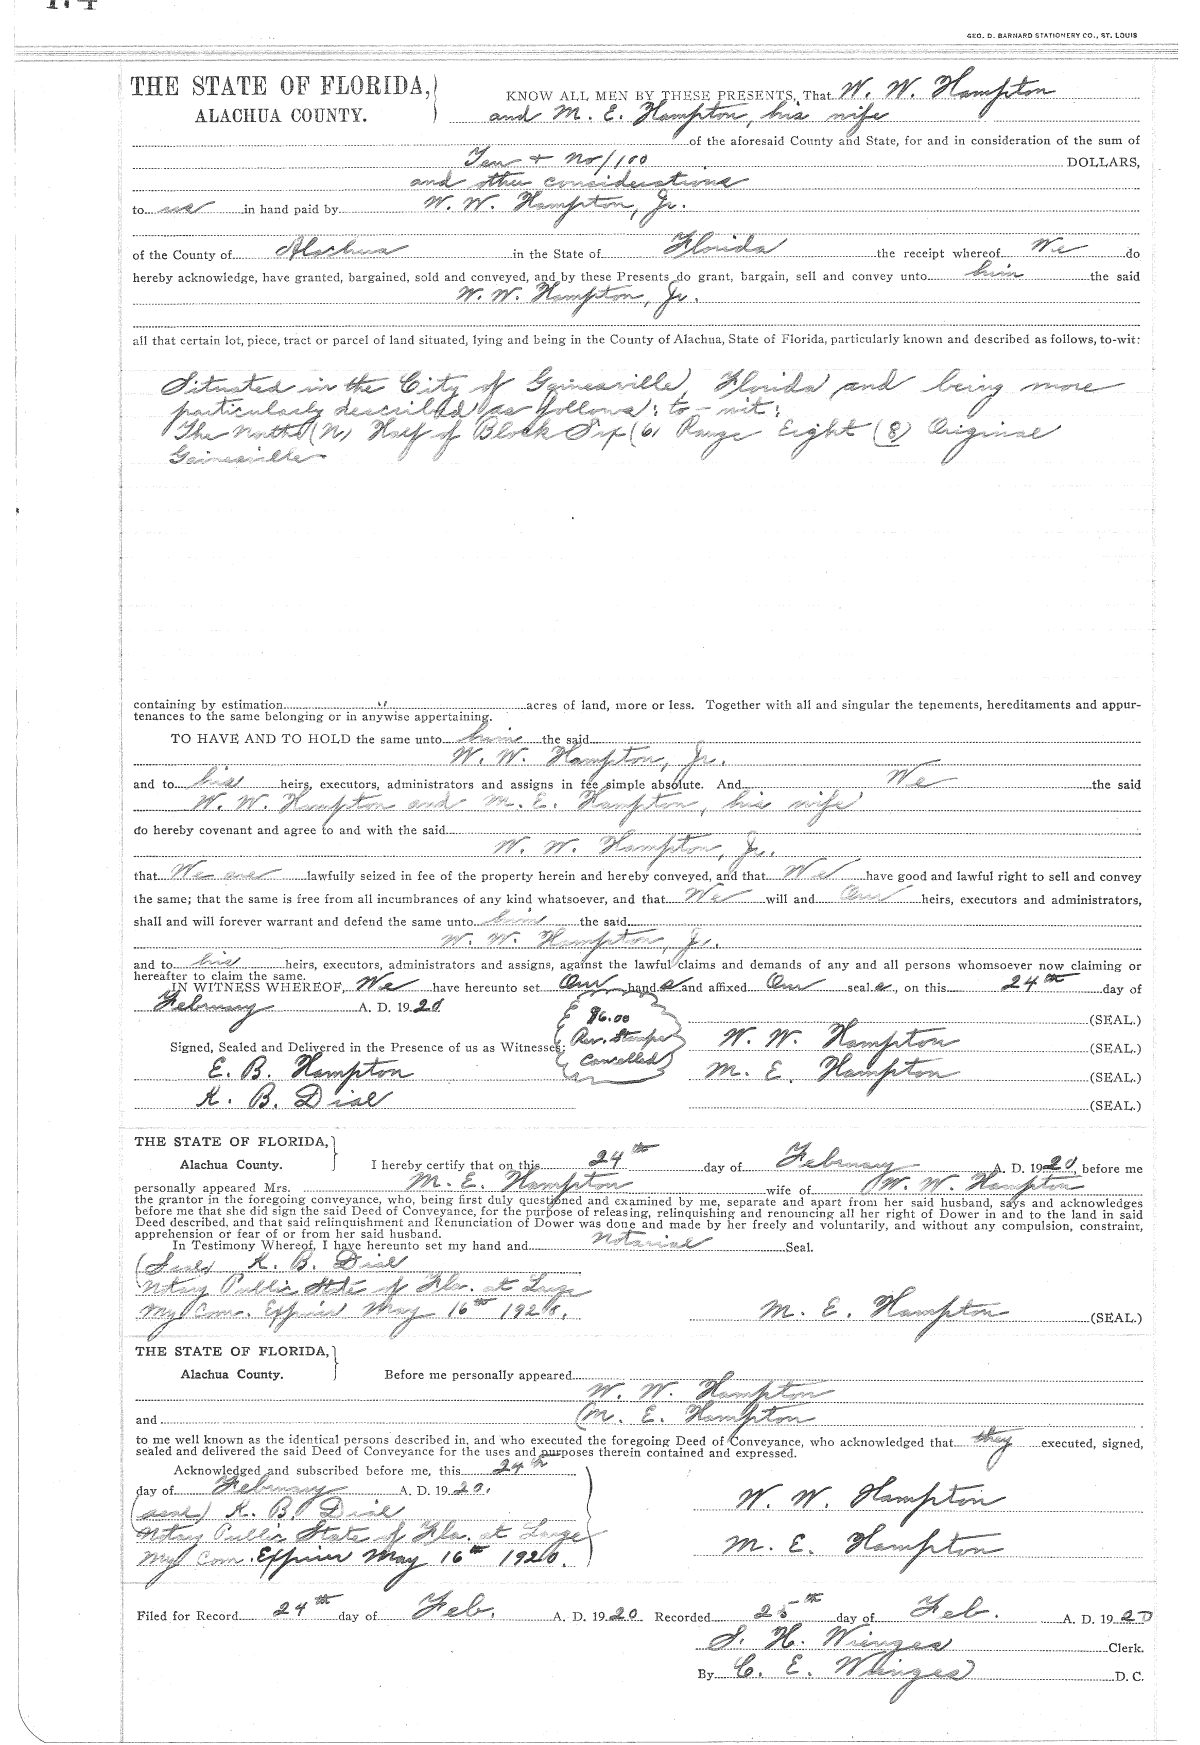 GEO. D. BARNARD STATIONERY CO., ST. LOUIS
THE STATE OF FLORIDA,
ALACHUA COUNTY.
KNOW ALL MEN BY THESE PRESENTS, That W. W. Hampton
and M. E. Hampton, his wife
of the aforesaid County and State, for and in consideration of the sum of
Ten + No/100 DOLLARS,
and other considerations
to us in hand paid by W. W. Hampton, Jr.
of the County of Alachua in the State of Florida the receipt whereof We do
hereby acknowledge, have granted, bargained, sold and conveyed, and by these Presents do grant, bargain, sell and convey unto him the said
W. W. Hampton, Jr.
all that certain lot, piece, tract or parcel of land situated, lying and being in the County of Alachua, State of Florida, particularly known and described as follows, to-wit:
Situated in the City of Gainesville, Florida, and being more
particularly described as follows: to-wit:
The North (N) Half of Block Six (6) Range Eight (8) Original
Gainesville
containing by estimation acres of land, more or less. Together with all and singular the tenements, hereditaments and appur-
tenances to the same belonging or in anywise appertaining.
TO HAVE AND TO HOLD the same unto him the said
W. W. Hampton, Jr.
and to his heirs, executors, administrators and assigns in fee simple absolute. And We the said
W. W. Hampton and M. E. Hampton, his wife
do hereby covenant and agree to and with the said
W. W. Hampton, Jr.
that We are lawfully seized in fee of the property herein and hereby conveyed, and that We have good and lawful right to sell and convey
the same; that the same is free from all incumbrances of any kind whatsoever, and that We will and Our heirs, executors and administrators,
shall and will forever warrant and defend the same unto him the said
W. W. Hampton, Jr.
and to his heirs, executors, administrators and assigns, against the lawful claims and demands of any and all persons whomsoever now claiming or
hereafter to claim the same.
IN WITNESS WHEREOF, We have hereunto set Our hand s and affixed Our seal s, on this 24th day of
February A. D. 1920
$6.00
Rev. Stamps
Cancelled
(SEAL.)
Signed, Sealed and Delivered in the Presence of us as Witnesses:
W. W. Hampton (SEAL.)
E. B. Hampton
M. E. Hampton (SEAL.)
K. B. Dial
(SEAL.)
THE STATE OF FLORIDA,
Alachua County.
I hereby certify that on this 24th day of February A. D. 1920, before me
personally appeared Mrs. M. E. Hampton wife of W. W. Hampton
the grantor in the foregoing conveyance, who, being first duly questioned and examined by me, separate and apart from her said husband, says and acknowledges
before me that she did sign the said Deed of Conveyance, for the purpose of releasing, relinquishing and renouncing all her right of Dower in and to the land in said
Deed described, and that said relinquishment and Renunciation of Dower was done and made by her freely and voluntarily, and without any compulsion, constraint,
apprehension or fear of or from her said husband.
In Testimony Whereof, I have hereunto set my hand and Notarial Seal.
(Seal) K. B. Dial
Notary Public State of Fla. at Large
My Com. Expires May 16th 1920.
M. E. Hampton (SEAL.)
THE STATE OF FLORIDA,
Alachua County.
Before me personally appeared
W. W. Hampton
and M. E. Hampton
to me well known as the identical persons described in, and who executed the foregoing Deed of Conveyance, who acknowledged that they executed, signed,
sealed and delivered the said Deed of Conveyance for the uses and purposes therein contained and expressed.
Acknowledged and subscribed before me, this 24th
day of February A. D. 1920.
(seal) K. B. Dial
Notary Public State of Fla. at Large
My Com. Expires May 16th 1920.
W. W. Hampton
M. E. Hampton
Filed for Record 24th day of Feb. A. D. 1920 Recorded 25th day of Feb. A. D. 1920
S. H. Wienges Clerk.
By C. E. Wienges D. C.